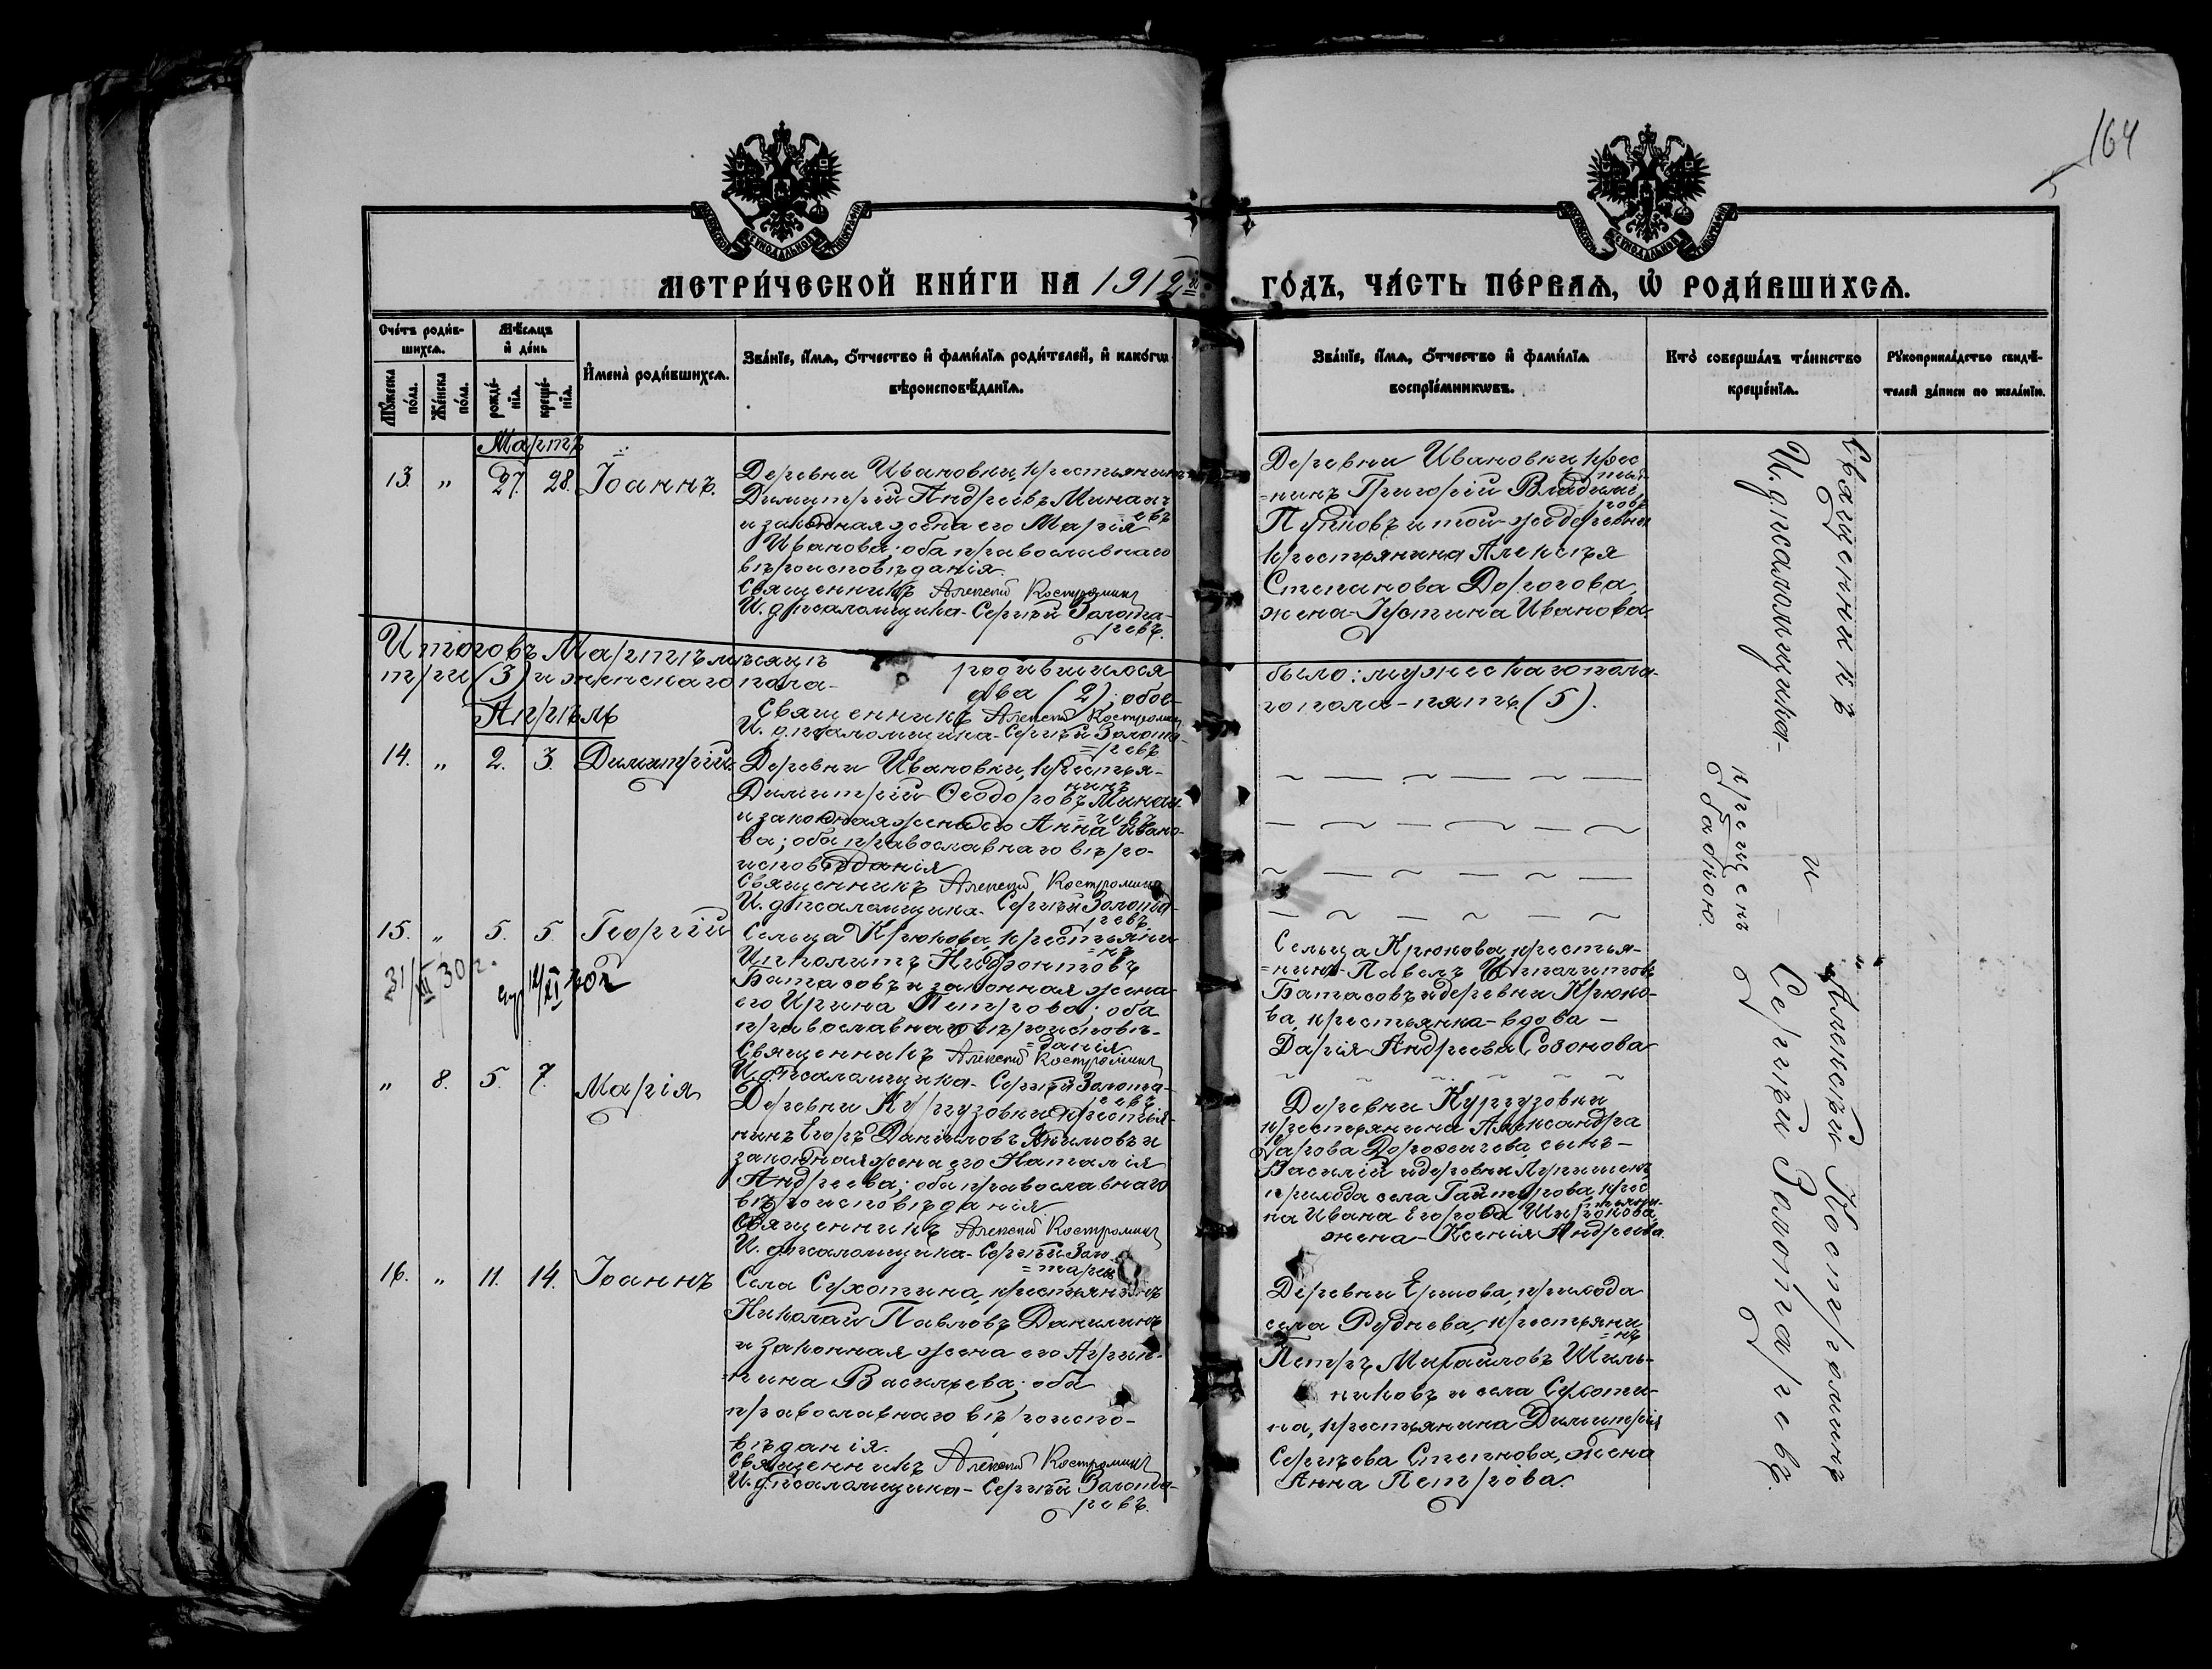 164
МЕТРИ́ЧЕСКОЙ КНИ́ГИ НА 1912й
ГО́ДЪ, ЧА́СТЬ ПЕ́РВАѦ, Ѡ РОДИ́ВШИХСѦ.
Сче́тъ роди́в-
шихсѧ.
Мꙋ́жеска по́ла.
Же́нска по́ла.
Мѣ́сѧцъ
и҆ де́нь
рожде́-
нїѧ.
креще́-
нїѧ.
И҆мена̀ роди́вшихсѧ.
Зва́нїе, и҆́мѧ, ѻ҆́тчество и҆ фами́лїѧ роди́телей, и҆ како́гѡ
вѣроисповѣ́данїѧ.
Зва́нїе, и҆́мѧ, ѻ҆́тчество и҆ фами́лїѧ
воспрїе́мникѡвъ.
Кто̀ соверша́лъ та́инство
креще́нїѧ.
Рꙋкоприкла́дство свидѣ́-
телей за́писи по жела́нїю.
Мартъ
13. „ 27. 28. Іоаннъ.
Деревни Ивановки, крестьянинъ
Димитрій Андреевъ Минаи-
=евъ
и законная жена его Марія
Иванова; оба православнаго
вѣроисповѣданія.
Священникъ Алексѣй Костроминъ
И. д. псаломщика - Сергѣй Золота-
ревъ.
Деревни Ивановки, крес
тья-
=нинъ Григорій Владимі
ровъ
и той-же деревни
крестьянина Алексѣя
Степанова Дорогова
жена - Іустина Иванова.
Итого въ Мартѣ мѣсяцѣ родившихся было: мужескаго пола-
три (3) и женскаго пола - два (2); обое-
го пола - пять (5).
Священникъ Алексѣй Костроминъ
И. д. псаломщика - Сергѣй Золота-
=ревъ
Апрѣль
14. „ 2. 3. Димитрій.
Деревни Ивановки, крестья-
нинъ
Димитрій Ѳеодоровъ Минаи-
=евъ
и законная жена его Анна Ивано-
ва; оба православнаго вѣро-
исповѣданія
Священникъ Алексѣй Костроминъ
И. д. псаломщика - Сергѣй Золота-
ревъ
крещенъ
бабкою.
15. „ 5. 5. Георгій
31/XII 30 г.
12/XI 30 г
Сельца Крюкова, крестьяни-
=нъ
Ипполитъ
Батасовъ и законная жена
его Ирина Петрова; оба
православнаго вѣроисповѣ-
=данія
Священникъ Алексѣй Костроминъ
И. д. псаломщика - Сергѣй Золота-
ревъ
Сельца Крюкова, крестья-
=нинъ - Павелъ Ипполитовъ
Батасовъ и деревни Крюко-
ва, крестьянка - вдова -
Дарія Андреева Созонова
„ 8. 5. 7. Марія
Деревни Кургузовки крестья-
нинъ Егоръ Даніиловъ Якимовъ и
законная жена его Наталія
Андреева; оба православнаго
вѣроисповѣданія
Священникъ Алексѣй Костроминъ
И. д. псаломщика - Сергѣй Золо-
=таревъ
Деревни Кургузовки
крестьянина Александра
сынъ -
Василій и деревни
прихода села крес
тьяни-
на Ивана Егорова
жена - Ксенія Андреева.
16. „ 11. 14. Іоаннъ
Села Сухотина, крестьянинъ
Николай Павловъ Данилинъ
и законная жена его Агрип-
пина Васильева; оба
православнаго вѣроиспо-
вѣданія.
Священникъ Алексѣй Костроминъ
И. д. псаломщика - Сергѣй Золота-
ревъ.
Деревни Ершова, прихода
села Руднева, крестьяни
=нъ
Петръ Михайловъ Шиль-
никовъ и села Сухоти-
на, крестьянина Димитрія
Сергѣева Степнова, жена
Анна Петрова.
Священникъ Алексѣй Костроминъ
и
И. д. псаломщика - Сергѣй Золотаревъ.